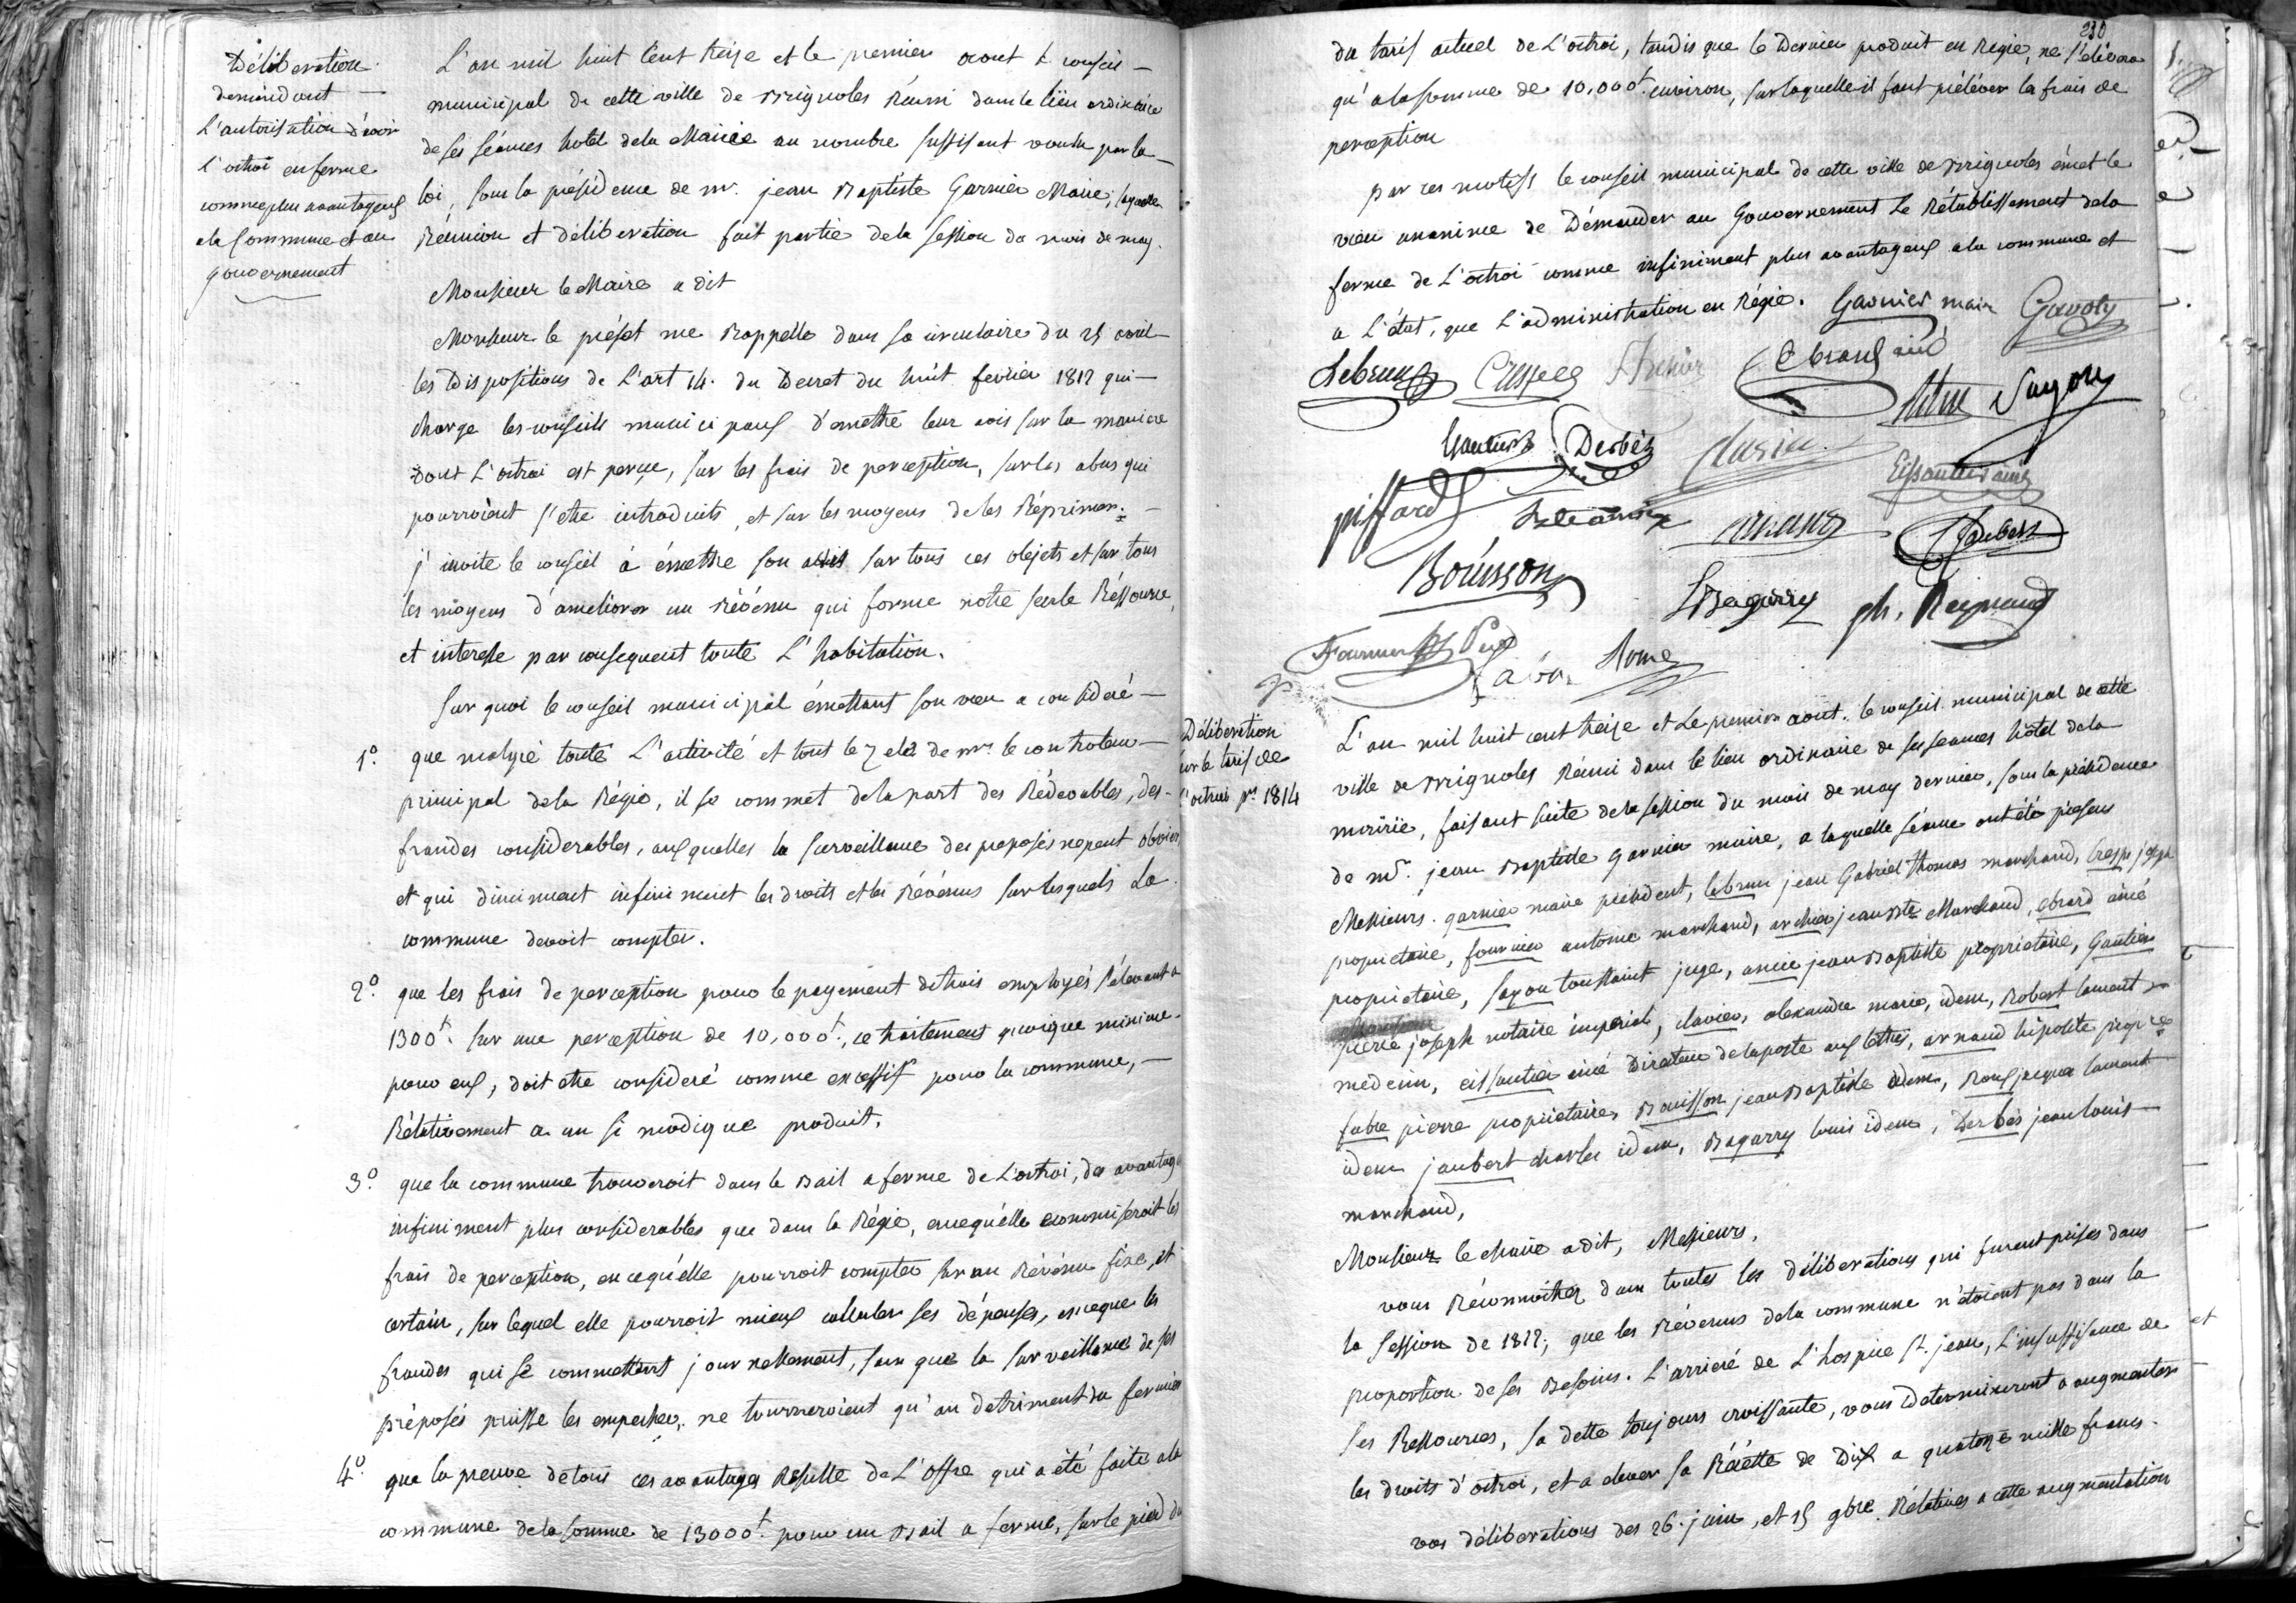 Délibération
demandant
L'autorisation d'avoir
l'octroi en ferme
comme plus avantageux
a la commune et au
gouvernement
L'an mil huit cent treize et le premier aout le conseil
municipal de cette ville de Brignoles Réuni dans le lieu ordinaire
de ses séances hotel de la Mairie au nombre suffisant voulu par la
loi, sous la présidence de mr. jean Baptiste Garnier Maire, laquelle
Réunion et délibération fait partie de la session du mois de may.
Monsieur le Maire a dit
Monsieur le préfet me Rappelle dans sa circulaire du 25 avril
les Dispositions de L'art 14. du Decret du huit fevrier 1812 qui
charge les conseils municipaux d'emettre leur avis sur la maniere
dont L'octroi est perçu, sur les frais de perception, sur les abus qui
pourroient s'etre introduits, et sur les moyens de les Réprimer.
j'invite le conseil à émettre son avis sur tous ces objets et sur tous
les moyens d'ameliorer un Révénu qui forme notre seule Réssource,
et interesse par consequent toute L'habitation.
Sur quoi le conseil municipal émettant son voeu a consideré
1°. que malgré toute L'activité et tout le zele de mr. le controleur
principal de la Régie, il se commet de la part des Rédevables, des
fraudes considerables, auxquelles la surveillance des preposés ne peut obvier,
et qui diminuent infiniment les droits et les Révénus sur lesquels La
commune devoit compter.
2°. que les frais de perception pour le payement de trois employés s'elevant a
1300 f. sur une perception de 10,000 f., ce traitement quoique minime
pour eux, doit etre consideré comme excessif pour la commune,
Rélativement a un si modique produit.
3°. que la commune trouveroit dans le Bail a ferme de L'octroi, des avantages
infiniment plus considerables que dans la Régie, en ce qu'elle economiseroit les
frais de perception, en ce qu'elle pourroit compter sur un Révénu fixe, et
certain, sur lequel elle pourroit mieux calculer ses dépenses, en ce que les
fraudes qui se commettent journellement, sans que la surveillance de ses
préposés puisse les empecher, ne tourneroient qu'au detriment du fermier
4°. que la preuve de tous ces avantages Résulte de L'offre qui a été faite a la
commune de la somme de 13000 f. pour un Bail a ferme, sur le pied du
230
du tarif actuel de L'octroi, tandis que le Dernier produit en Régie, ne s'elevera
qu'a la somme de 10,000 f. environ, sur laquelle il faut préléver les frais de
perception
par ces motifs le conseil municipal de cette ville de Brignoles émet le
voeu unanime de Démander au Gouvernement Le Rétablissement de la
ferme de L'octroi comme infiniment plus avantageux a la commune et
a L'état, que L'administration en Régie. Garnier maire Gavoty
Lebrun Crespe Archier Ebrard ainé
fabre Sayou
Gautier Derbès Clavier
Eissautier ainé
piffard arnaud Jaubert
Bouisson
LBagarry ph. Reynaud
Fournier
Délibération
sur le tarif de
l'octroi pr. 1814
L'an mil huit cent treize et Le premier aout. le conseil municipal de cette
ville de Brignoles Réuni dans le lieu ordinaire de ses seances hôtel de la
mairie, faisant suite de la session du mois de may dernier, sous la présidence
de mr. jean Baptiste garnier maire, a laquelle séance ont été présens
Messieurs. garnier maire président, lebrun jean Gabriel Thomas marchand, Crespe joseph
proprietaire, fournier antoine marchand, archier jean Bte Marchand, ebrard ainé
proprietaire, sayou toussaint juge, jean Baptiste proprietaire, Gautier
pierre joseph notaire imperial, clavier, alexandre marie, idem, Robert laurent
medecin, eissautier ainé Directeur de la poste aux lettres, arnaud hipolite propre
fabre pierre proprietaire, Bouisson jean Baptiste idem, Roux jacques laurent
idem jaubert charles idem, Bagarry louis idem, Derbès jean louis
marchand,
Monsieur le Maire a dit, Messieurs,
vous Réconnoitrez dans toutes les délibérations qui furent prises dans
la Session de 1812, que les Révenus de la commune n'étoient pas dans la
proportion de ses Besoins. L'arrieré de L'hospice St. jean, L'insuffisance de
ses Ressources, sa dette toujours croissante, vous Déterminerent a augmenter
les droits d'octroi, et a elever sa Récétte de Dix a quatorze mille francs.
vos délibérations des 26. juin, et 15 9bre. Rélatives a cette augmentation
et